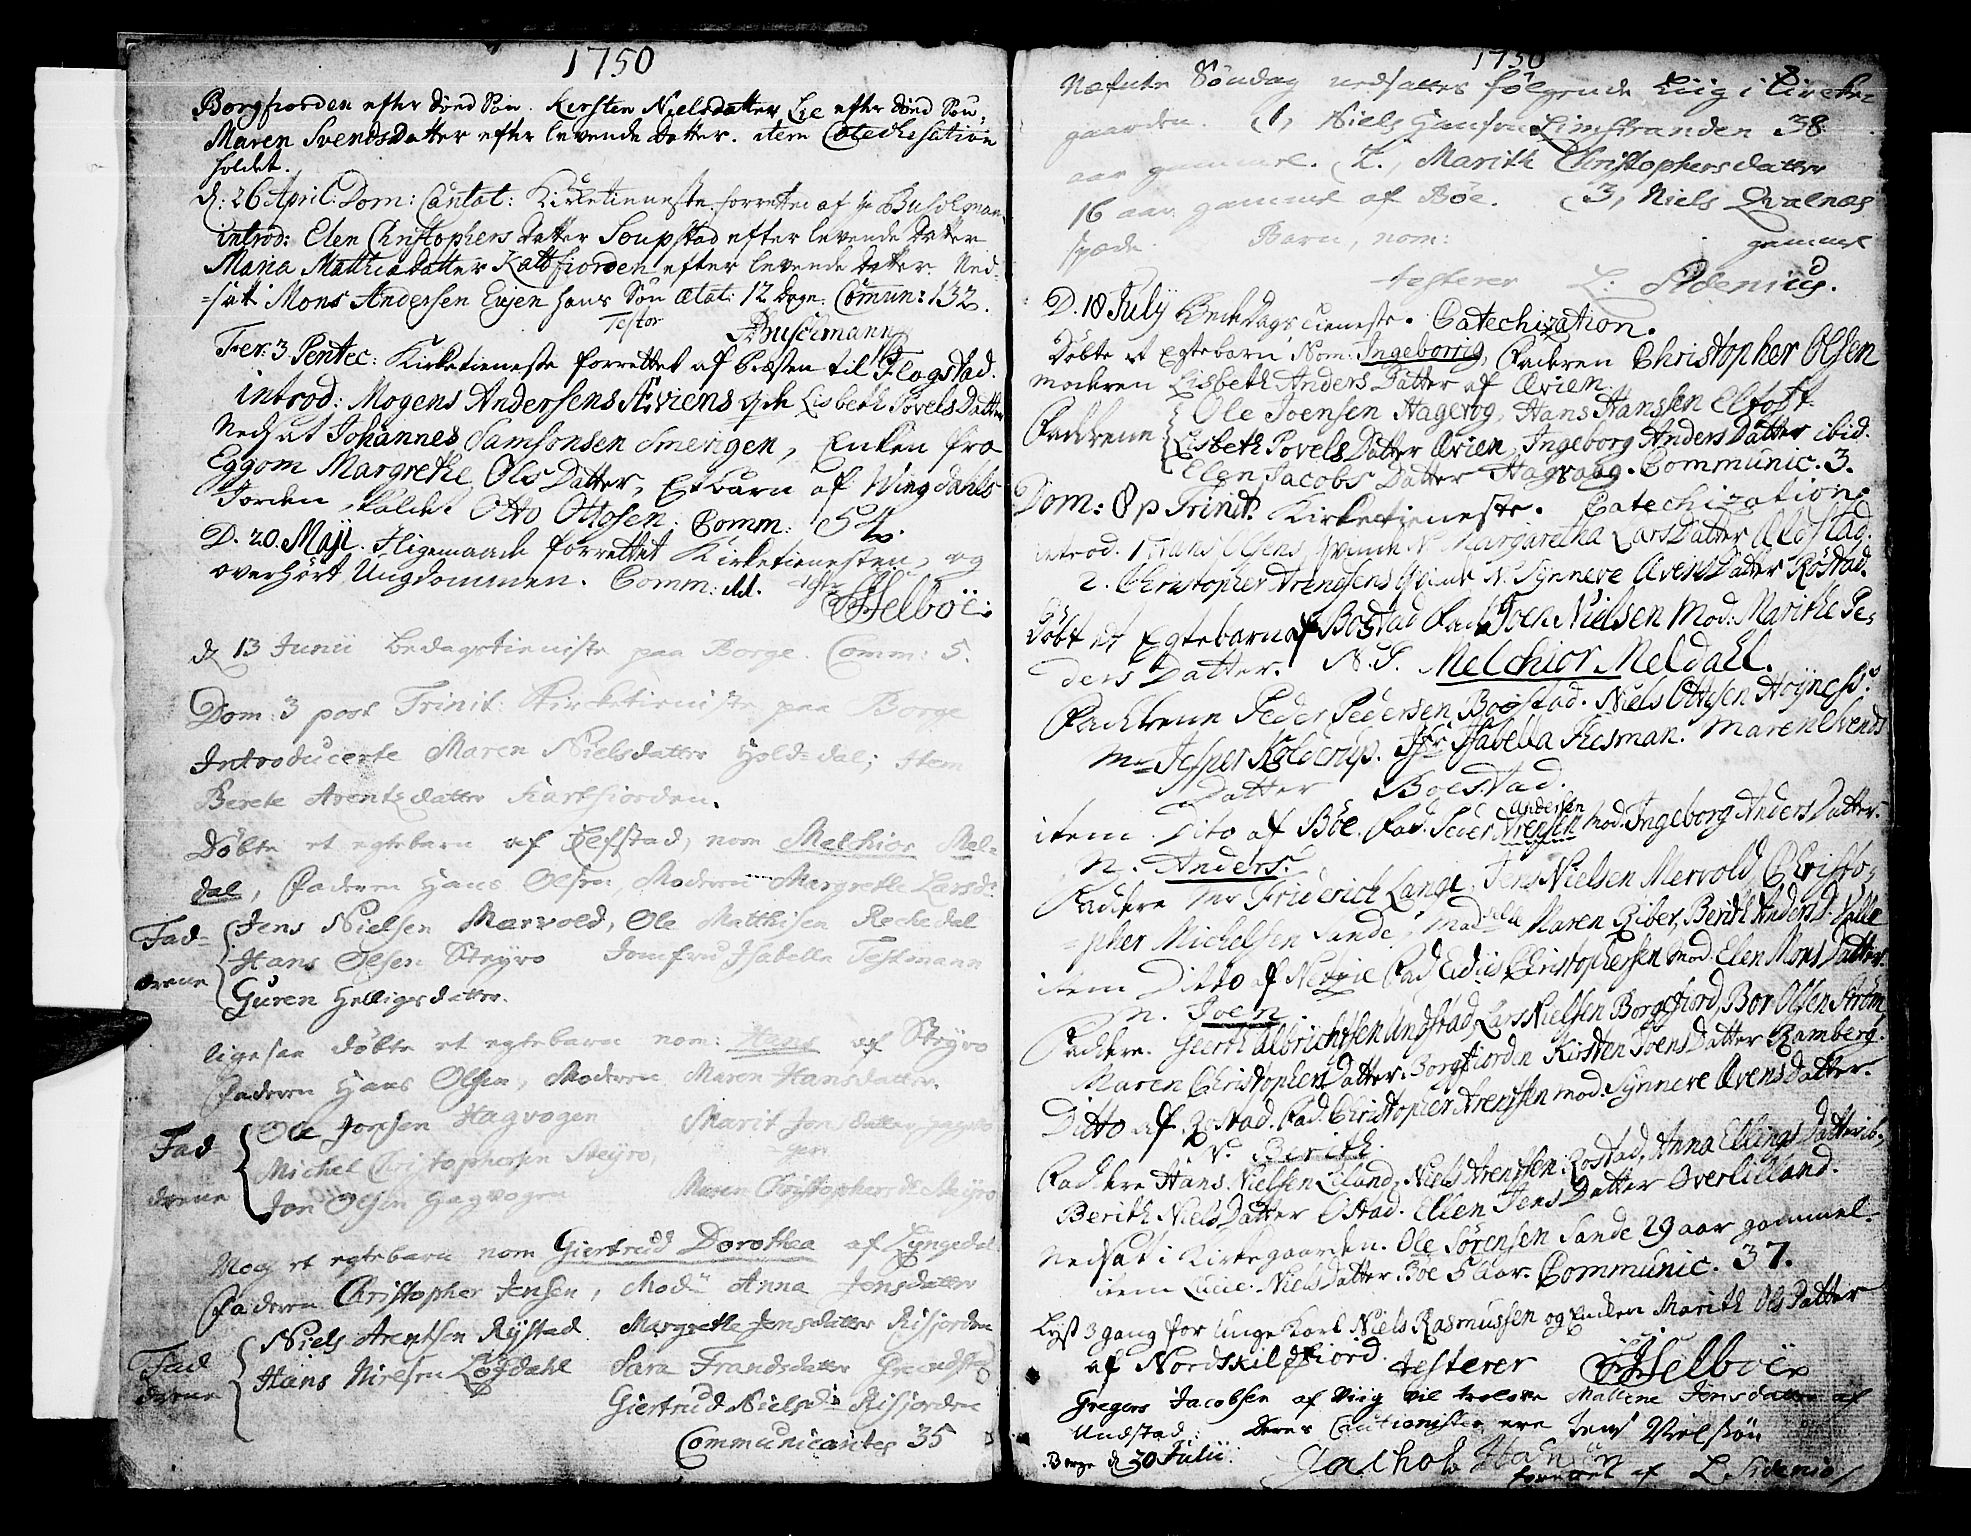 1750
Borgfiorden efter död Søn. Kirsten Nielsdatter Lie efter död Søn,
Maren Svendsdatter efter levende datter. item Catechisation
holdet.
d: 26 April: Dom: Cantat: Kirketieneste forrettet af Hr Buschman
introd: Elen Christophers datter Soupstad efter levende datter
Maria Matthiædatter Kaltfiorden efter levende datter. Ned-
=satt Mons Andersen Evjen hans Søn ætat: 12 dage. Commun: 132.
Testor Buschmann
Fer: 3 Pentec: Kirketieneste forrettet af Præsten til Flagstad.
introd: Mogens Andersens Æviens qde Lisbeth Povels Datter
Nedsat Johannes Samsonsen Smerigen, Enken fra
Eggom Margrethe Ols Datter, Et barn af Wingdahls
Jorden, kaldet Otto Ottosen; Comm: 54.
D. 20. Maji. Ligemaade forrettet Kirketienesten, og
overhørt Ungdommen. Comm: Helboe:
d 13 Junii bedagstieniste paa Borge. Comm: 5.
Dom: 3 post Trinit: Kirketieniste paa Borge
Introducerte Maren Nielsdatter Holdsdal; Item
Berete Arentsdatter Kartfiorden.
Döbte et egtebarn af Lefstad, nom Melchior Mel-
dal, Faderen Hans Olsen, Moderen Margrethe Larsd:
Fad- Jens Nielsen Marvold, Ole Matthisen Reckedal
Hans Olsen Steyro Jomfru Isabella Testmann
drene Guren Helligsdatter.
ligesaa döbte et egtebarn nom: Hans af Steyro
Faderen Hans Olsen, Moderen Maren Hansdatter.
Ole Jonsen Hagvogen Marit Jonsdatter Hagvo
Fad Michel Christophersen Steyro, gen
drene Jon Olsen Hagvogen Maren Christophersd: Steyro
Nog et egtebarn nom Giertrud Dorothea af Lyngedal
Faderen Christopher Jensen, Modn Anna Jonsdatter
Niels Arentsen Rystad Margrethe Jensdatter Risjorden
Fad Hans Nielsen Lögdahl Sara Frandsdatter
drene Giertrud Nielsd: Risjorden
Communicantes 35
1750
Næfnte Söndag nedsattes følgende Liig i Kircke-
gaarden. 1, Niels Hansen Limstranden 38
aar gammel. 2., Marith Christophersdatter
16 aar gammel af Böe. 3, Niels Qvalnæs
spæde Barn, nom: gammel
testerer L: Sidenius.
D. 18 July Bededags tieneste. Catechization.
Döbte et Egtebarn, Nom: Ingeborrig, Faderen Christopher Olsen
moderen Lisbeth Anders Datter af Ævien.
Ole Joensen Hagevog, Hans Hanssen Eltoft.
Faddrene Lisbeth Povels Datter Ævien, Ingeborg Anders Datter ibid.
Elen Jacobs Datter Hagvaag. Communic. 3.
Dom: 8 p Trinit. Kirketieneste. Catechization.
introd. 1. Hans Olsens qvinde N. Margaretha Lars Datter
2. Christopher Arenssens qvinde N. Synneve Ævens Datter Röstad.
Döbt et Egtebarn af Bostad Fad. Joen Nielsen Mod: Marithe Pe-
ders Datter. N. S. Melchior Meldahl.
Faddrene Peder Pedersen Boestad. Niels Ottesen Höynes.
Mr Jesper Kolderup. Jfr Isabella Tesman. Maren Svends
Datter Boestad.
item Dito af Böe. Fad. Peder Arensen Andersen Mod: Ingeborg Anders Datter.
N. Anders.
Faddere Mr Friderich Lange, Jens Nielsen Mervold, Christo-
=pher Michelsen Sande, Madlle Maren Riber, Berith Andersd. Valle
item Ditto af Fad. Eidiis Christophersen Mod: Elen Mons Datter
N. Joen
Faddere. Geert Albrichtsen Undstad, Lars Nielsen Borgefiord, Bor Olsen Ström
Maren Christophers Datter Borgfiorden Kirsten Joens Datter Ramberg.
Ditto af Rostad. Fad. Christopher Arenssen mod: Synneve Ævens Datter.
N. Berith.
Faddere Hans Nielsen Liland, Niels Arenssen Rostad, Anna Ellings Datter ib,
Berith Niels Datter Ostad. Ellen Jens Datter Overlilland.
Nedsat i Kirkegaarden. Ole Sörensen Sande 29 aar gammel.
item Lucie: Niels Datter Boe 5 aar. Communic. 37.
Lyst 3 gang for unge karl Niels Rasmussen og Enken Marith Ols Datter
af Nordskilsfiord. testerer Helboe
Gregers Jacobsen af Viig vil trolove Mallene Jonsdatter af
Undstad: deres Cautionister ere Jens Nielsøn
Borge d 30 Julii. Jachob Hansen
forrettet af L. Sidenius